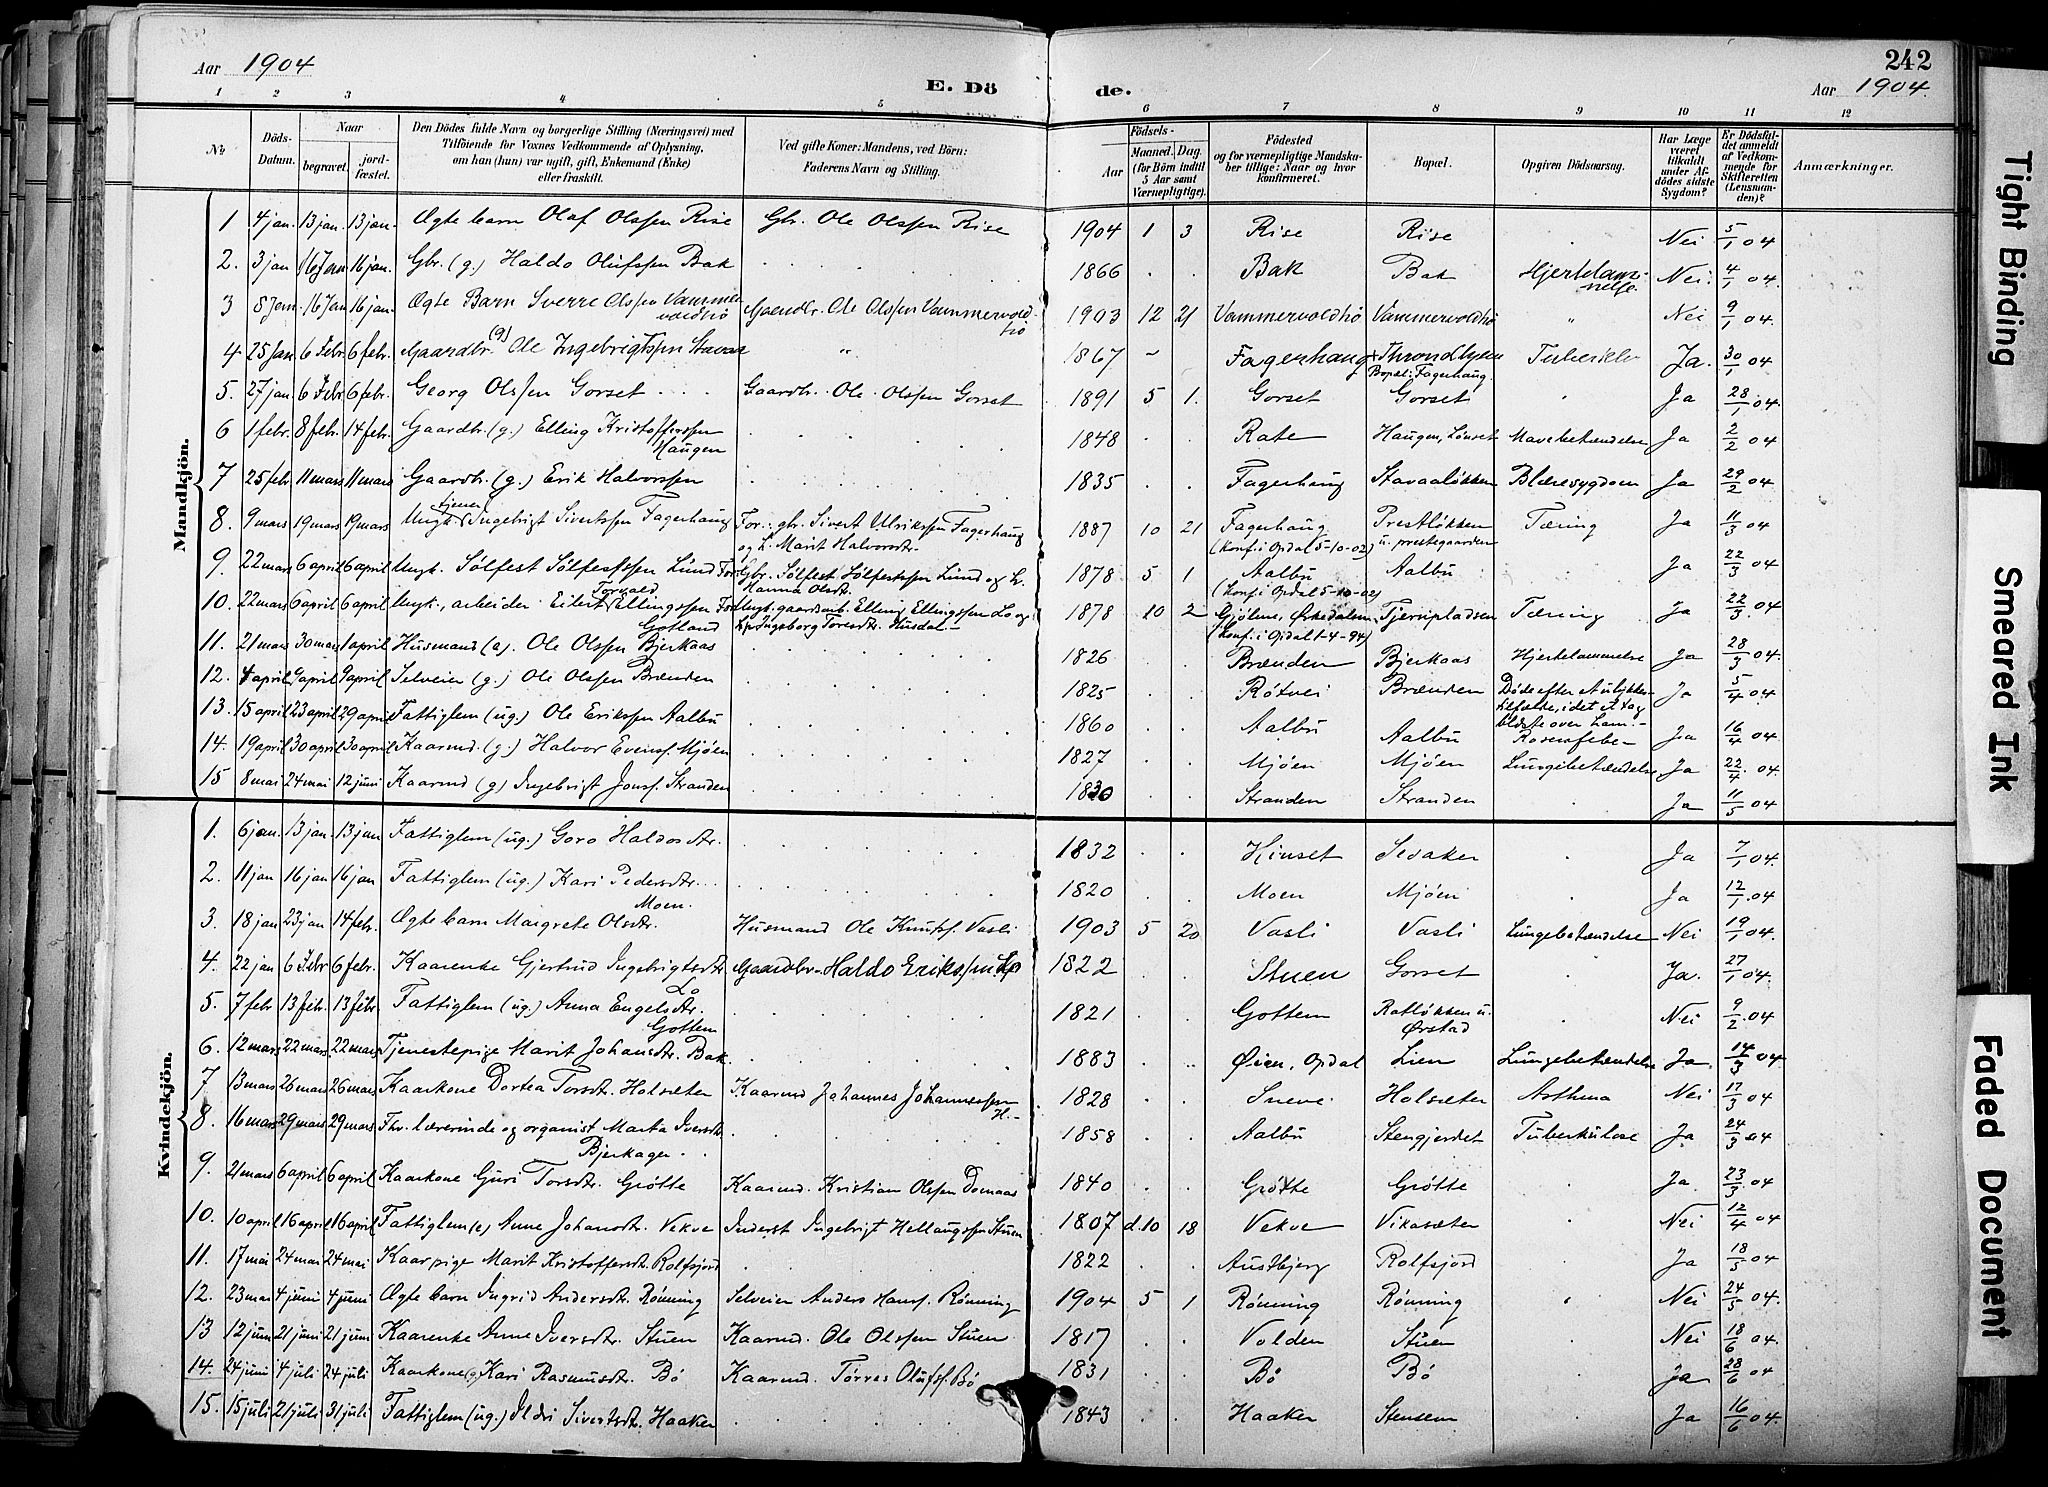 242
Aar 1904
E. Dö de.
Aar 1904.
1 2 3 4 5 6 7 8 9 10 11 12
No.
Döds-Datum.
Naar
begravet.
jordfæstet.
Den Dödes fulde Navn og borgerlige Stilling (Næringsvei) med
Tilföiende for Voxnes Vedkommende af Oplysning,
om han (hun) var ugift, gift, Enkemand (Enke)
eller fraskilt.
Ved gifte Koner: Mandens, ved Börn:
Faderens Navn og Stilling.
Födsels-
Aar
Maaned. Dag.
(for Börn indtil
5 Aar samt
Værnepligtige).
Födested
og for værnepligtige Mandska-
ber tillige: Naar og hvor
konfirmeret.
Bopæl.
Opgiven Dödsaarsag.
Har Læge
været
tilkaldt
under Af-
dödes sidste
Sygdom?
Er Dödsfal-
det anmeldt
af Vedkom-
mende for
Skifteretten
(Lensman-
den)?
Anmærkninger.
Mandkjön.
1 4 jan. 13 jan. 13 jan. Ægte barn Olaf Olssen Rise Gbr. Ole Olssen Rise 1904 1 3 Rise Rise Nei 5/1 04
2. 3 jan 16 Jan 16 jan. Gbr. (g.) Haldo Olufssen Bak 1866 Bak Bak Hjertelam-melse. Nei. 4/1 04
3 8 Jan 16 Jan 16 jan. Ægte Barn Sverre Olssen Vammervoldhö Gaardbr. Ole Olssen Vammervoldhö 1903 12 21 Vammervoldhö Vammervoldhö " Nei 9/1 04.
4 25 Jan 6 Febr 6 febr. Gaardbr. (g) Ole Ingebrigtssen Stavaa " 1867 Fagerhaug Throndhjem Bopæl: Fagerhaug. Ja. 30/1 04
5. 27 jan 6 Febr 6 febr. Georg Olssen Gorset Gaardbr. Ole Olssen Gorset 1891 5 1. Gorset Gorset Ja 28/1 04.
6 1 febr. 8 febr. 14 febr. Gaardbr. (g.) Elling Kristofferssen Haugen 1848 Rate Haugen, Lönset Mavebetændelse Ja 2/2 04
7 25 febr 11 mars 11 mars Gaardbr. (g.) Erik Halvorssen 1835 Fagerhaug Stavaaløkken Blæresygdom Ja 29/2 04
8. 9 mars 19 mars 19 mars Ungk. tjener Ingebrigt Sivertssen Fagerhaug For.: gbr. Sivert Ulrikssen Fagerhaug og h. Marit Halvorsdtr. 1887 10 21 Fagerhaug (Konf. i Opdal 5-10-02) Prestløkken u. prestegaarden Tæring Ja 11/3 04
9. 22 mars 6 april 6 april Ungk. Sølfest Sølfestssen Lund For. Gbr. Sølfest Sølfestssen Lund og h. Hanna Olsdtr. 1878 5 1 Aalbu (Konf. i Opdal 5-10-02) Aalbu Ja 22/3 04
10. 22 mars 6 april 6 april Ungk., arbeider Eilert Torvald Ellingssen Gotland For. Ungk. gaardarb. Elling Ellingssen Lo og Ingeborg Toresdtr. Husdal 1878 10 2 Gjølme, Ørkedalen (Konf. i Opdal 1-4-94) Tjernpladsen Tæring Ja 22/3 04
11. 21 mars 30 mars 1 april Husmand (e). Ole Olssen Bjerkaas 1826 Brænden Bjerkaas Hjertelammelse Ja 28/3 04.
12. 4 april 9 april 9 april Selveier (g.) Ole Olssen Brænden 1825 Røtvei Brænden Døde efter et ulykkes-tilfælde, idet et tag blæste over ham Ja 5/4 04
13. 15 april 23 april 29 april Fattiglem (ug.) Ole Erikssen Aalbu 1860 Aalbu Aalbu Rosenfeber Ja 16/4 04
14. 19 april 30 april 30 april Kaarmd. (g.) Halvor Evenss. Mjøen 1827 Mjøen Mjøen Lungebetændelse Ja 22/4 04.
15 8 mai 24 mai 12 juni Kaarmd (g) Ingebrigt Jonss. Stranden 1830 Stranden Stranden Ja 11/5 04
Kvindekjön.
1. 6 jan. 13 jan. 13 jan Fattiglem (ug.) Goro Haldosdtr. 1832 Hinset Sevaker Ja 7/1 04.
2. 11 jan 16 jan 16 jan Fattiglem (ug.) Kari Pedersdtr. Moen 1820 Moen Mjøen Ja 12/1 04
3. 18 jan 23 jan 14 febr. Ægte barn Margrete Olsdtr. Husmand Ole Knutss. Vasli 1903 5 20 Vasli Vasli Lungebetændelse Nei 19/1 04.
4. 22 jan 6 Febr 6 febr. Kaarenke Gjertrud Ingebrigtsdtr. Lo Gaardbr. Haldo Erikssen Lo 1822 Stuen Gorset Ja. 27/1 04.
5. 7 febr 13 febr. 13 febr Fattiglem (ug.) Anna Engelsdtr. Gottem 1821 Gottem Ratløkken u. Ørstad Nei 9/2 04
6. 12 mars 22 mars 22 mars Tjenestepige Marit Johansdtr. Bak 1883 Øien, Opdal Lien Lungebetændelse Ja 14/3 04
7 13 mars 26 mars 26 mars Kaarkone Dortea Torsdtr. Holsæter Kaarmd Johannes Johannessen H. 1828 Sneve Holsæter Asthma Nei 17/3 04
8. 16 mars 29 mars 29 mars Fhv. lærerinde og organist Marta Iversdtr. Bjerkager 1858 Aalbu Stengjerdet Tuberkulose Ja 24/3 04
9. 21 mars 6 april 6 april Kaarkone Guri Torsdtr. Grøtte Kaarmd. Kristian Olssen Domaas 1840 Grøtte Grøtte Ja 23/3 04
10. 10 april 16 april 16 april Fattiglem (e) Anne Johansdtr. Vekve Inderst Ingebrigt Hellaugssen Stuen 1807 d. 10 18 Vekve Vikasæter Nei 12/4 04
11. 17 mai 24 mai 24 mai Kaarpige Marit Kristoffersdtr. Rolfsjord 1822 Austbjerg Rolfsjord Ja 18/5 04
12. 23 mai 4 juni 4 juni Ægte barn Ingrid Andersdtr. Rönning Selveier Anders Hanss. Rönning 1904 5 1 Rönning Rönning Nei 24/5 04.
13 12 juni 21 juni 21 juni Kaarenke Anne Iversdtr. Stuen Kaarmd. Ole Olssen Stuen 1817 Volden Stuen Nei 18/6 04.
14. 24 juni 4 juli 24 juli Kaarkone (g) Kari Rasmusdtr. Bö Kaarmd. Torres Olufss. Bö 1831 Bö Bö Ja 28/6 04
15. 15 juli 21 juli 31 juli Fattiglem (ug.) Ildri Sivertsdtr. Haaker 1843 Haaker Stensem Ja 16/6 04.
Tight Binding
Smeared Ink
Faded Document